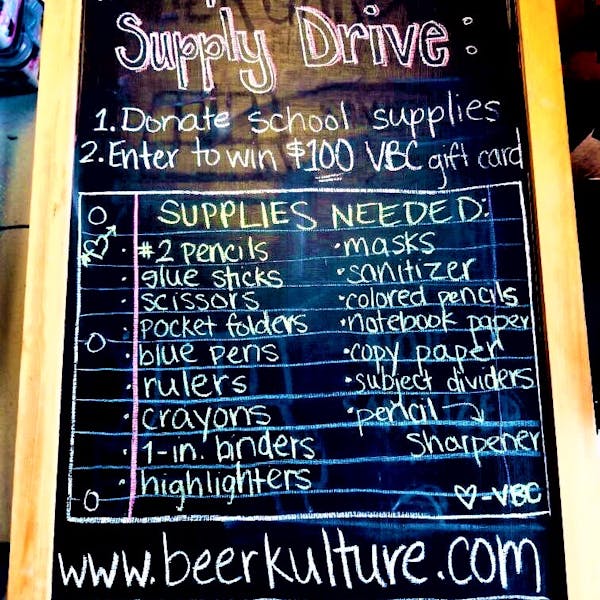 Supply Drive:
1. Donate school supplies
2. Enter to win $100 VBC gift card
SUPPLIES NEEDED:
· #2 pencils
· glue sticks
· scissors
· pocket folders
· blue pens
· rulers
· crayons
· 1-in. binders
· highlighters
· masks
· sanitizer
· colored pencils
· notebook paper
· copy paper
· subject dividers
· pencil →
sharpener
♡-VBC
www.beerkulture.com